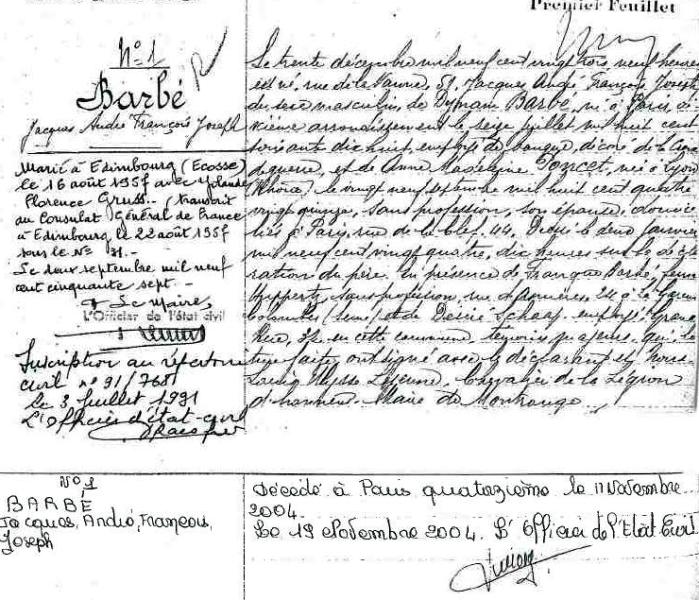 Premier Feuillet
N° 1
Barbé
Jacques André François Joseph
Marié à Edimbourg (Ecosse)
le 16 août 1957 avec Yolande
Florence Gruss. (transcrit
au Consulat Général de France
à Edimbourg le 22 août 1957
sous le N° 31.-
Le deux septembre mil neuf
cent cinquante sept -
Le Maire,
L'Officier de l'état civil
Inscription au répertoire
civil n° 91/768
Le 3 Juillet 1991
L'Officier d'état-civil
Le trente décembre mil neuf cent vingt trois, neuf heures
est né, rue de la Vanne, 59, Jacques André François Joseph
du sexe masculin, de BARBÉ, né à Paris,
arrondissement le seize juillet mil huit cent
soixante dix huit, employé de banque, décoré de la Croix
de guerre, et de Anne Madeleine PONCET, née à Lyon
(Rhône) le vingt neuf septembre mil huit cent quatre
vingt quinze, sans profession, son épouse, domici-
liés à Paris, rue de la Clef, 44. le deux janvier
mil neuf cent vingt quatre, dix heures sur la décla-
ration du père. En présence de Barbé, femme
sans profession, rue 24 à La Garenne
Colombes (Seine) et de Désiré employé, Grande
Rue, 37, en cette commune, témoins qui,
lecture faite, ont signé avec le déclarant et nous
Louis Ulysse Lejeune, Chevalier de la Légion
d'honneur, Maire de Montrouge
N° 1
BARBÉ
Jacques, André, François,
Joseph
Décédé à Paris quatorzième le 11 Novembre
2004.
Le 19 Novembre 2004. L'Officier de l'Etat Civil